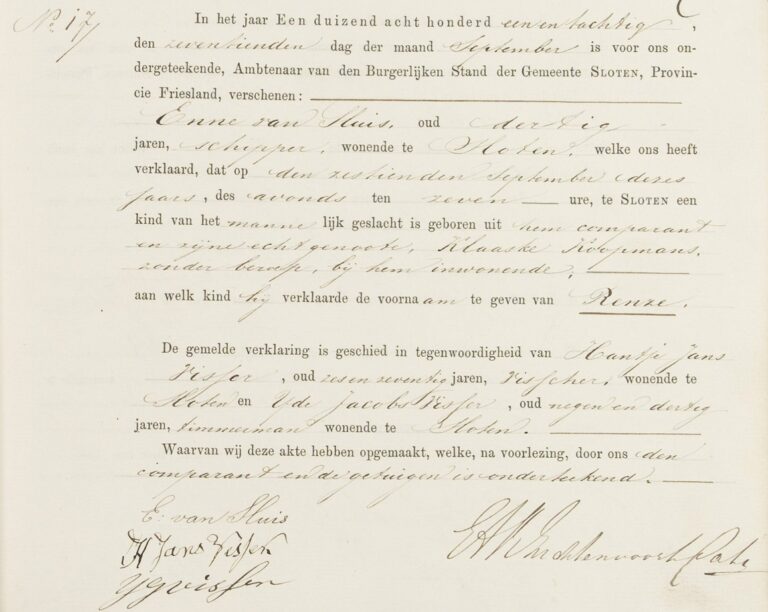 No. 17
In het jaar Een duizend acht honderd een en tachtig,
den zeventienden dag der maand September is voor ons on-
dergeteekende, Ambtenaar van den Burgerlijken Stand der Gemeente SLOTEN, Provin-
cie Friesland, verschenen:
Enne van Sluis, oud dertig
jaren, schipper, wonende te Sloten, welke ons heeft
verklaard, dat op den zestienden September dezes
jaars, des avonds ten zeven ure, te SLOTEN een
kind van het mannelijk geslacht is geboren uit hem comparant
en zijne echtgenoote, Klaaske Koopmans,
zonder beroep, bij hem inwonende,
aan welk kind hij verklaarde de voornaam te geven van Renze.
De gemelde verklaring is geschied in tegenwoordigheid van Hantje Jans
Visser, oud zes en zeventig jaren, Visscher, wonende te
Sloten en Yde Jacobs Visser, oud negen en dertig
jaren, timmerman wonende te Sloten.
Waarvan wij deze akte hebben opgemaakt, welke, na voorlezing, door ons den
comparant en de getuigen is onderteekend.
E: van Sluis
H Jans Visser